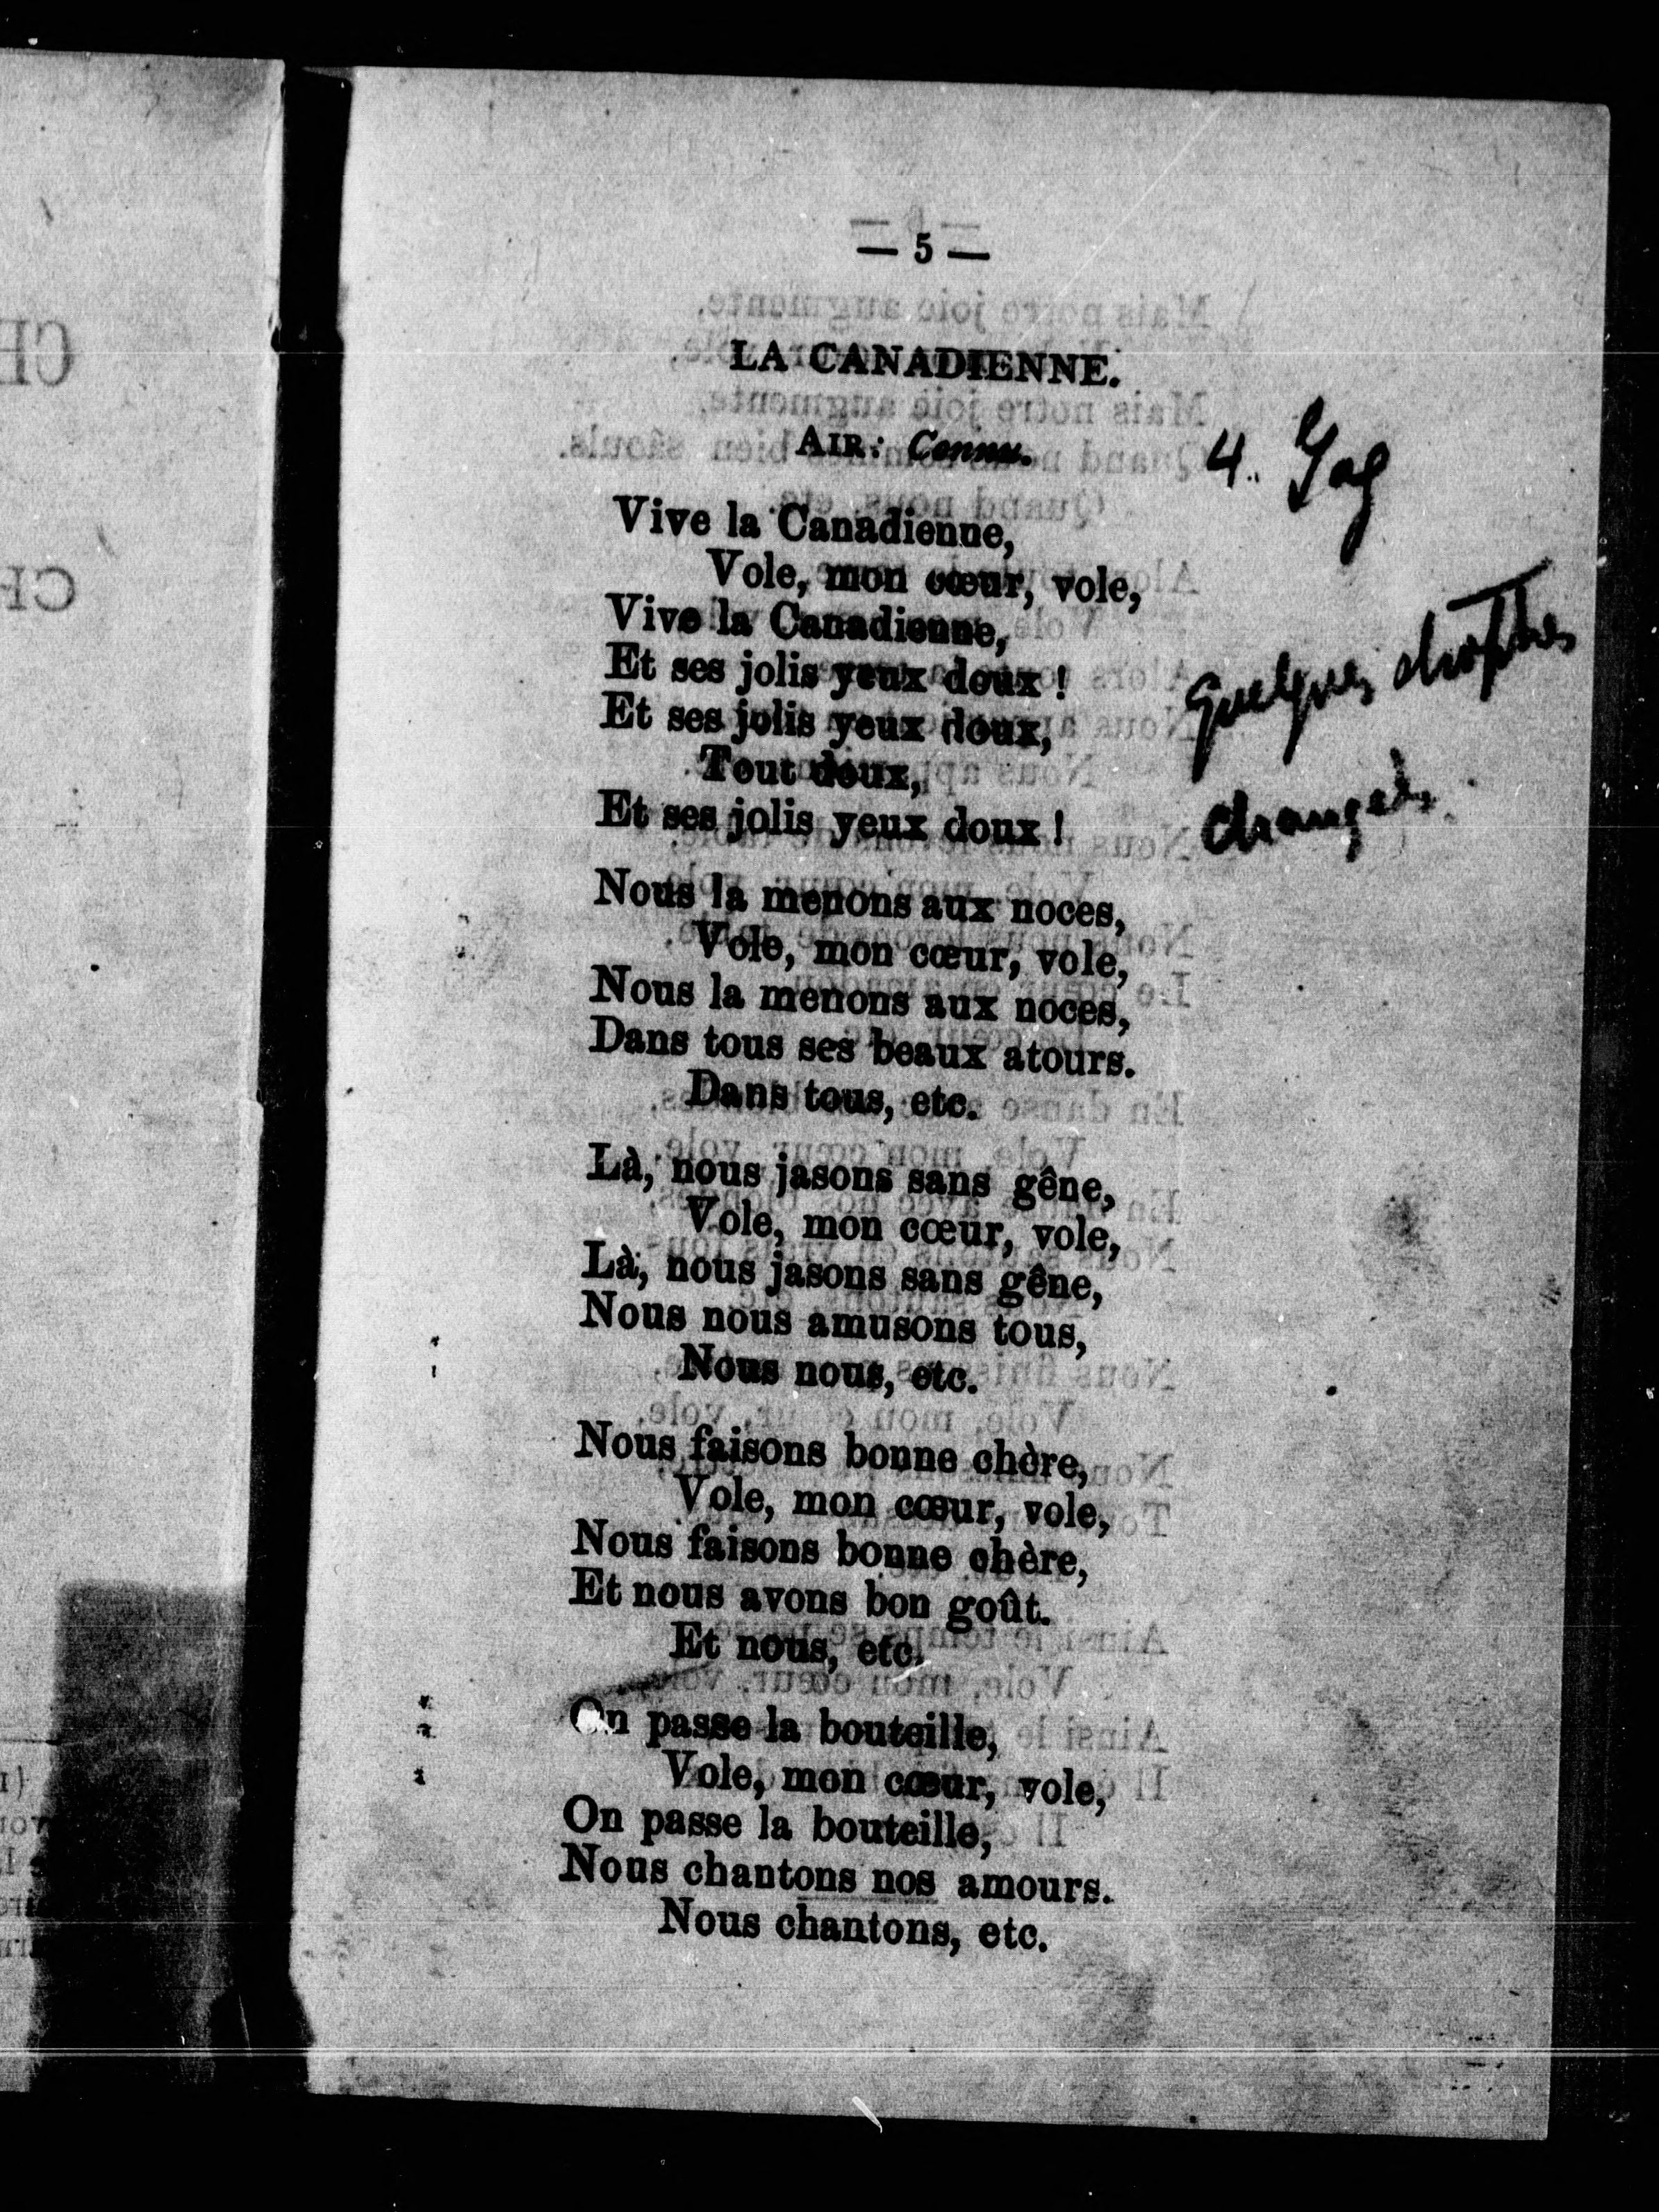 — 5 —
LA CANADIENNE.
AIR: Connu.
4. Gag
Vive la Canadienne,
Vole, mon cœur, vole,
Vive la Canadienne,
Et ses jolis yeux doux !
Et ses jolis yeux doux,
Tout doux,
Et ses jolis yeux doux !
Quelques
changés.
Nous la menons aux noces,
Vole, mon cœur, vole,
Nous la menons aux noces,
Dans tous ses beaux atours.
Dans tous, etc.
Là, nous jasons sans gêne,
Vole, mon cœur, vole,
Là, nous jasons sans gêne,
Nous nous amusons tous,
Nous nous, etc.
Nous faisons bonne chère,
Vole, mon cœur, vole,
Nous faisons bonne chère,
Et nous avons bon goût.
Et nous, etc.
On passe la bouteille,
Vole, mon cœur, vole,
On passe la bouteille,
Nous chantons nos amours.
Nous chantons, etc.